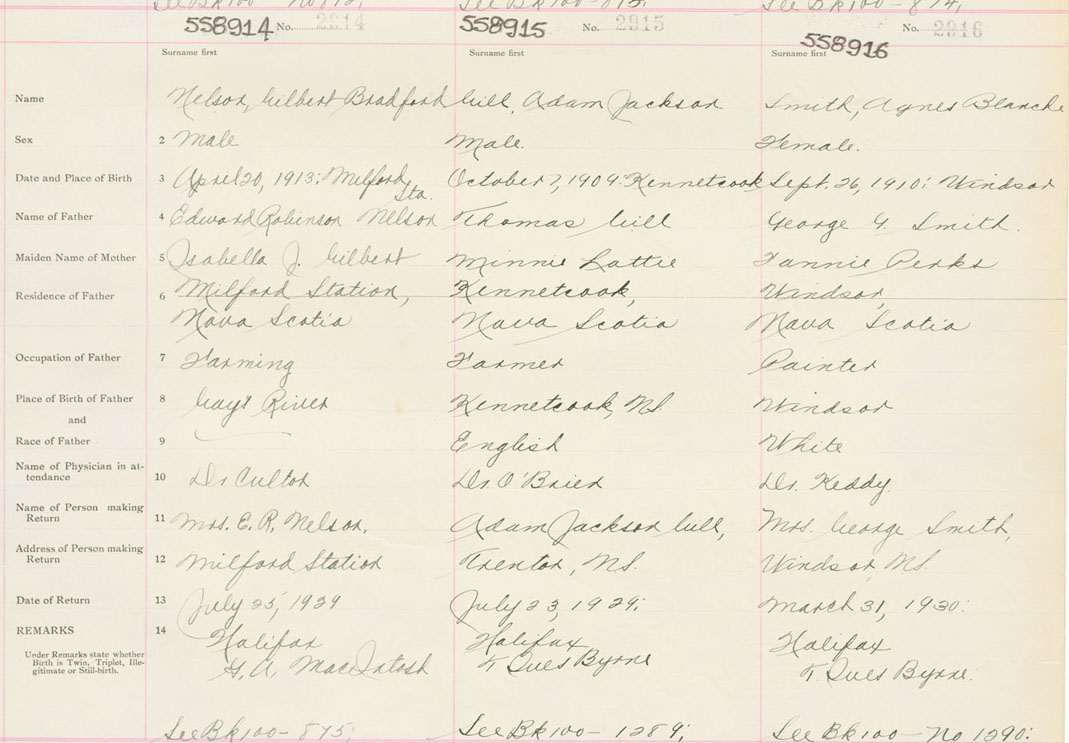 See Bk 100-
See Bk 100-
See Bk 100-
558914 No. 2914
558915 No. 2915
558916 No. 2916
Surname first
Surname first
Surname first
Name Nelson, Gilbert Bradford Gill, Adam Jackson Smith, Agnes Blanche
Sex 2 Male Male. Female.
Date and Place of Birth 3 April 20, 1913: Milford October 7, 1909: Kennetcook Sept. 26, 1910: Windsor
Sta.
Name of Father 4 Edward Robinson Nelson Thomas Gill George G. Smith.
Maiden Name of Mother 5 Isabella J. Gilbert Minnie Lattie Fannie Perks
Residence of Father 6 Milford Station, Kennetcook, Windsor,
Nova Scotia Nova Scotia Nova Scotia
Occupation of Father 7 Farming Farmer Painter
Place of Birth of Father 8 Gays River Kennetcook, NS. Windsor
and
Race of Father 9 English White
Name of Physician in at-
tendance 10 Dr. O'Brien Dr. Keddy.
Name of Person making
Return 11 Mrs. E. R. Nelson. Adam Jackson Gill, Mrs. George Smith,
Address of Person making
Return 12 Milford Station Trenton, NS. Windsor, NS.
Date of Return 13 July 25, 1929 July 23, 1929: March 31, 1930:
REMARKS 14 Halifax Halifax Halifax
Under Remarks state whether
Birth is Twin, Triplet, Ille-
gitimate or Still-birth.
G. A. MacIntosh Byrne Byrne.
See Bk 100- 875; See Bk 100- 1289; See Bk 100- No 1290: